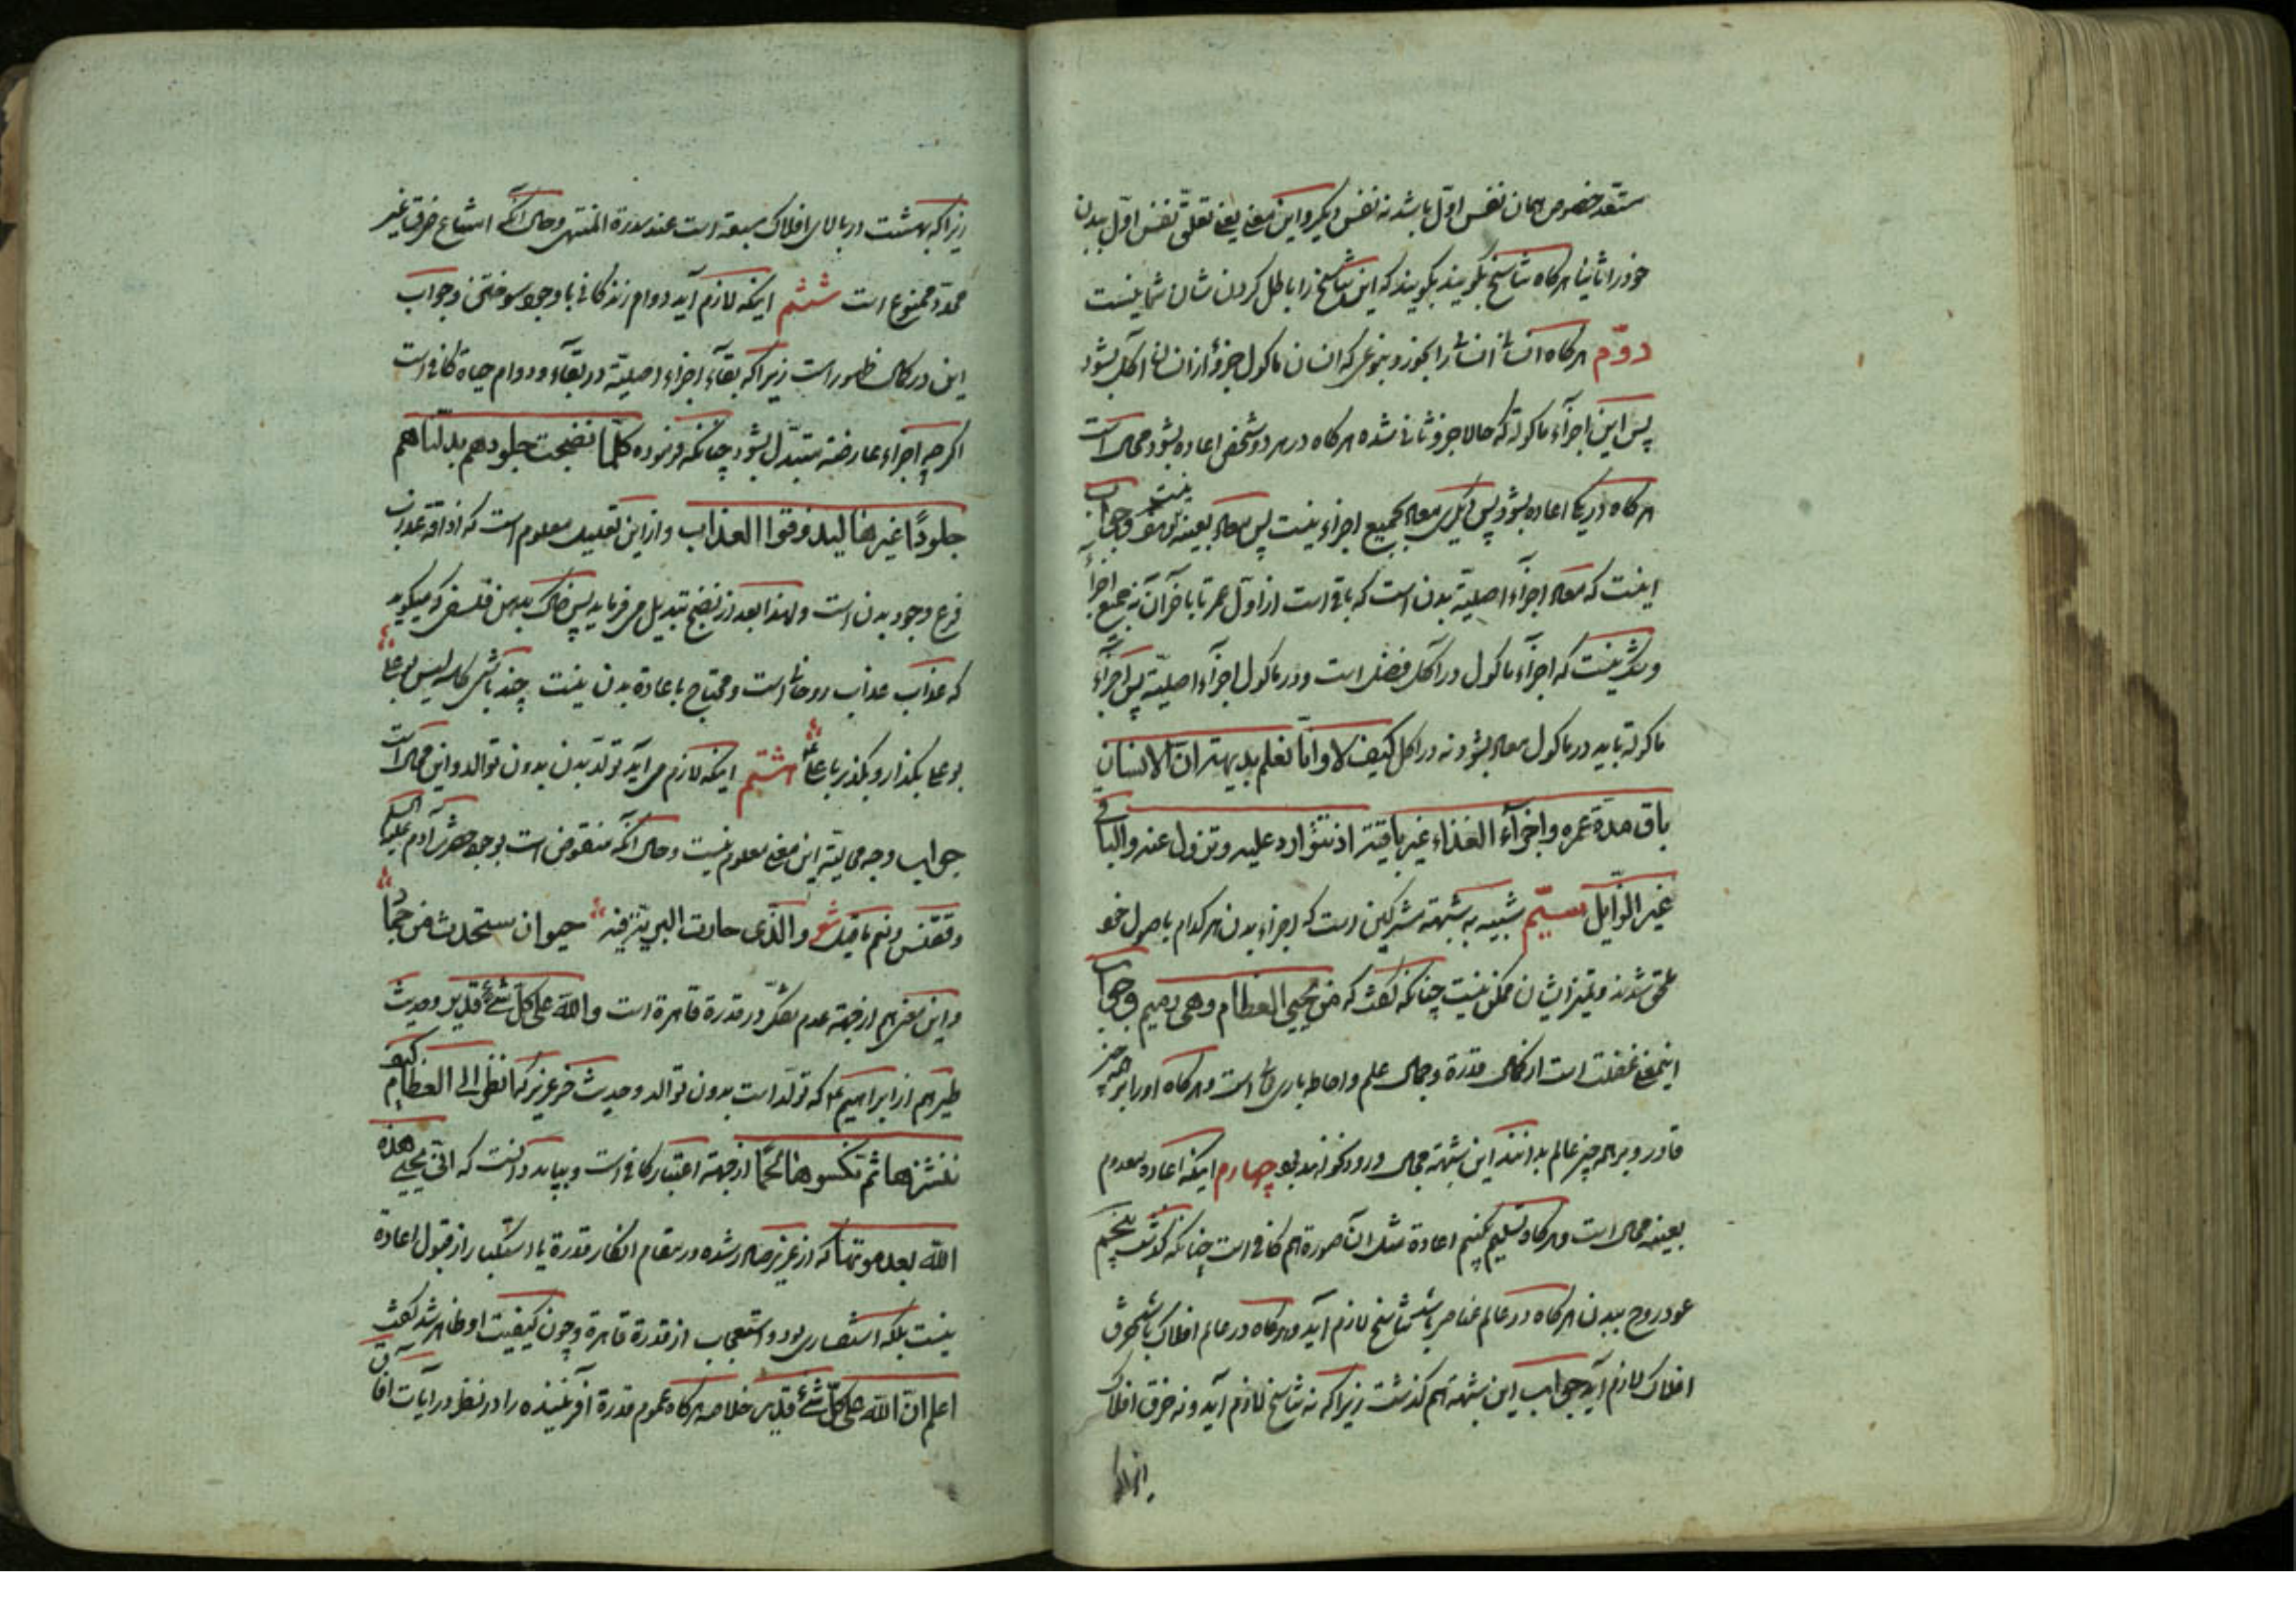 مستعد خصوص همان نفس اوّل باشد نه نفس دیکر و این معنی یعنی تعلّق نفس اوّل ببدن
خود را ثانیا هرکاه تناسخ بکویند بکویند که این تناسخ را باطل کردن شان شما نیست
دوّم هرکاه انسانی انسانی را بخورد بنوعی که انسان ماکول جزؤ از انسان آکل بشود
پس این اجزآء ماکوله که حالا جزو ثانی شده هرکاه در هر دو شخص اعاده بشود محال است
هرکاه در یکی اعاده بشود پس دیکری معاد بجمیع اجزاء نیست پس معاد بعینه نیست وجواب
اینست که معاد اجزآء اصلیّة بدن است که باقی است از اوّل عمر تا باخر آن نه جمیع اجزآء
و شک نیست که اجزآء ماکول در آکل فضل است و در ماکول اجزآء اصلیّة پس اجزآء
ماکوله باید در ماکول معاد بشود نه در اکل کیف لا وانّا نعلم بدیهة انّ الانسان
باق مدّة عمره واجزآء الغذاء غیر باقیة اذ تتوارد علیه وتزول عنه والباقی
غیر الزّایل سیّم شبیه به شبهه مشرکین است که اجزاء بدن هرکدام باصول خود
ملحق شدند و تمیز ایشان ممکن نیست چنانکه کفت که من یحیی العظام وهی رمیم وجواب
اینمعنی غفلت است از کمال قدرة و جمال علم و احاطه باری تعالی است و هرکاه او را بر هر چیز
قادر و بر هر چیز عالم بدانند این شبهه مجال ورود نخواهد بود چهارم اینکه اعاده معدوم
بعینه محال است و هرکاه تسلیم کنیم اعادة مثل آن صورة هم کافی است چنانکه کذشت پنجم
عود روح ببدن هرکاه در عالم عناصر باشد تناسخ لازم آید و هرکاه در عالم افلاک باشد خرق
افلاک لازم آید جواب این شبهه هم کذشت زیرا که نه تناسخ لازم آید و نه خرق افلاک
زیرا که
زیرا که بهشت در بالای افلاک سبعه است عند سدرة المنتهی و حال آنکه امتناع خرق غیر
محدّد ممنوع است ششم اینکه لازم آید دوام زندکانی با وجود سوختن و جواب
این در کمال ظهور است زیرا که بقآء اجزاء اصلیّة در بقآء و دوام حیاة کافی است
اکرچه اجزاء عارضه متبدّل بشود چنانکه فرموده کلّما نضجت جلودهم بدّلناهم
جلودًا غیرها لیذوقوا العذاب و از این تعلیل معلوم است که اذاقه عذاب
فرع وجود بدن است و لهذا بعد از نضج تبدیل می فرماید پس خاک بدهن فلسفی که میکوید
که عذاب عذاب روحانی است و محتاج باعادة بدن نیست چند باشی کاسه لیس بوعلی
بوعلی بکذار و بکذر با علی هشتم اینکه لازم می آید تولّد بدن بدون توالد و این محال است
جواب وجه محالیّة این معنی معلوم نیست و حال آنکه منقوض است بوجود حضرت آدم علیه السلام
و ققنس و نعم ما قیل شعر والّذی حارت البریّة فیه حیوان مستحدث من جماد
و این معنی هم از جهة عدم تفکّر در قدرة قاهرة است والله علی کلّ شئ قدیر و حدیث
طیر هم از ابراهیم که تولّد است بدون توالد و حدیث خر عزیر کما نظر الی العظام کیف
ننشزها ثم نکسوها لحمًا از جهة اعتبار کافی است و بباید دانست که انّی یحیی هذه
الله بعد موتها که از عزیر صادر شده در مقام انکار قدرة یا استکبار از قبول اعادة
نیست بلکه استفسار بود و استعجاب از قدرة قاهرة و چون کیفیت او ظاهر شد کفت
اعلم انّ الله علی کلّ شئ قدیر خلاصه هرکاه عموم قدرة آفریننده را در نظر در آیات آفاق